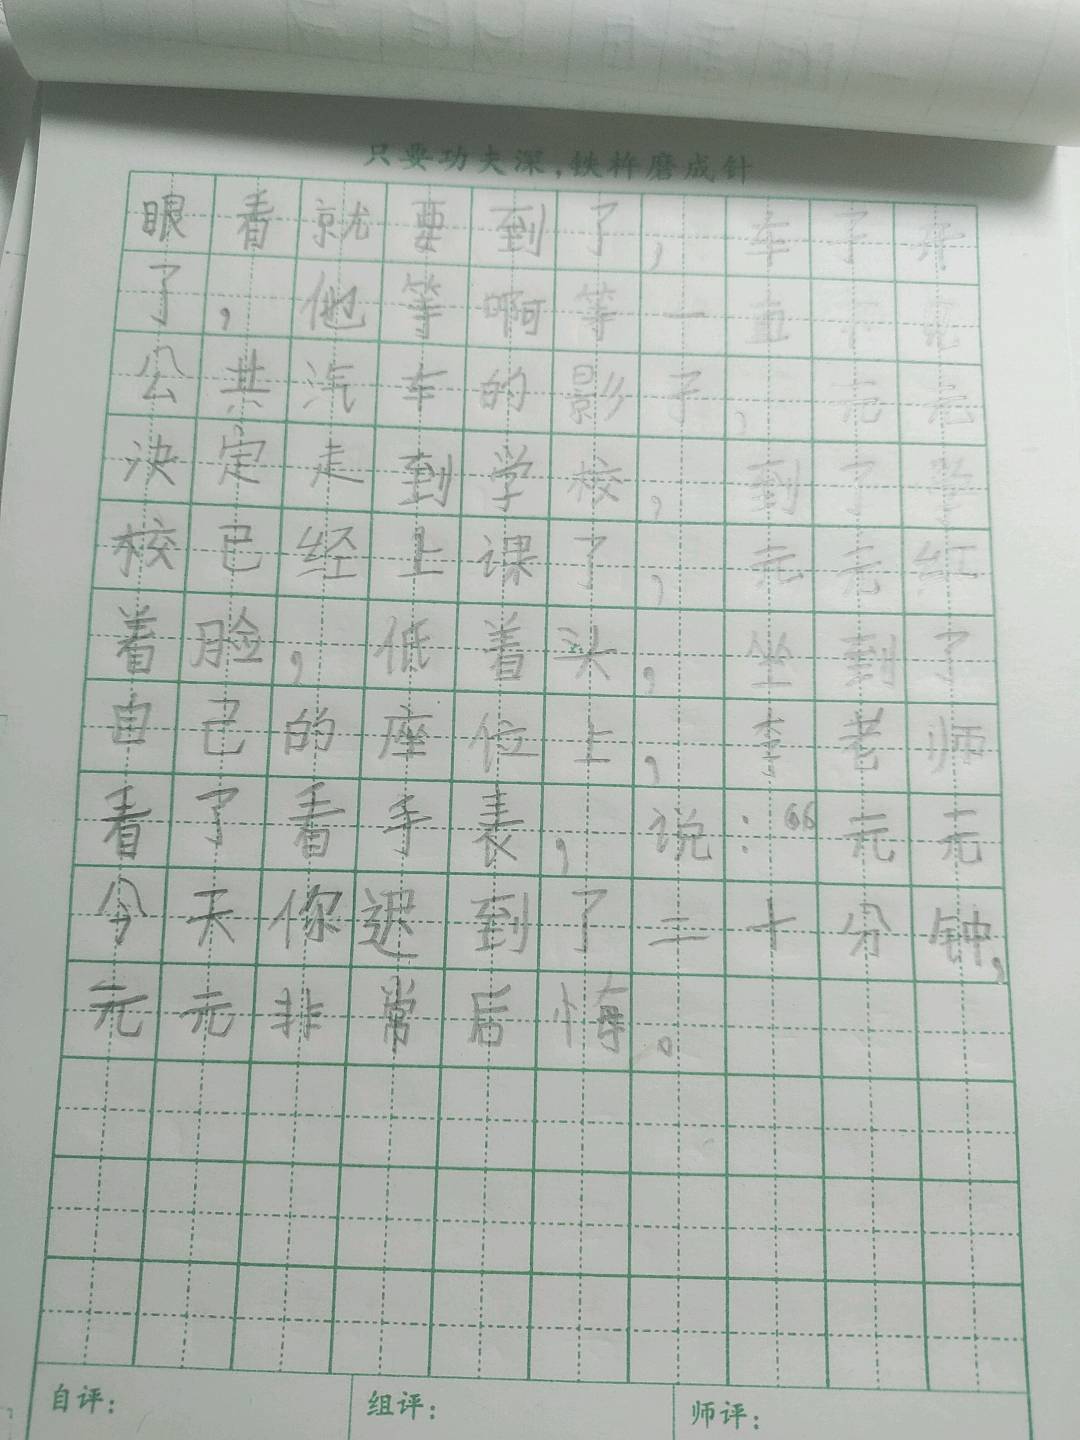 只要功夫深，铁杵磨成针
眼看就要到了，车子开
了，他等啊等一直不见
公共汽车的影子，元元
决定走到学校，到了学
校已经上课了，元元红
着脸，低着头，坐到了
自己的座位上，李老师
看了看手表，说：“元元
今天你迟到了二十分钟，
元元非常后悔。
自评：
组评：
师评：